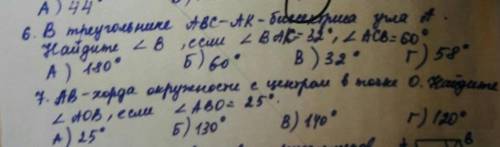 А) 44°
6. В треугольнике АВС-АК-биссектриса угла А.
Найдите ∠В, если ∠ВАК=32°, ∠АСВ=60°
А) 180° Б) 60° В) 32° Г) 58°
7. АВ-хорда окружности с центром в точке О. Найдите
∠АОВ, если ∠АВО=25°.
А) 25° Б) 130° В) 140° Г) 120°